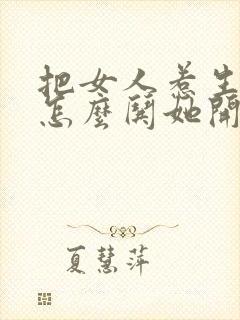 把女人惹生
怎麼鬨她開
夏慧萍